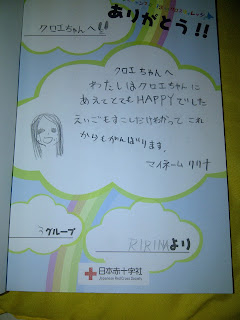 ありがとう!!
クロエちゃんへ
クロエちゃんへ
わたしはクロエちゃんに
あえてとてもHAPPYでした
えいごもすこしだけわかって これ
からもがんばります。
マイネーム リリナ
3グループ
RIRINAより
日本赤十字社
Japanese Red Cross Society